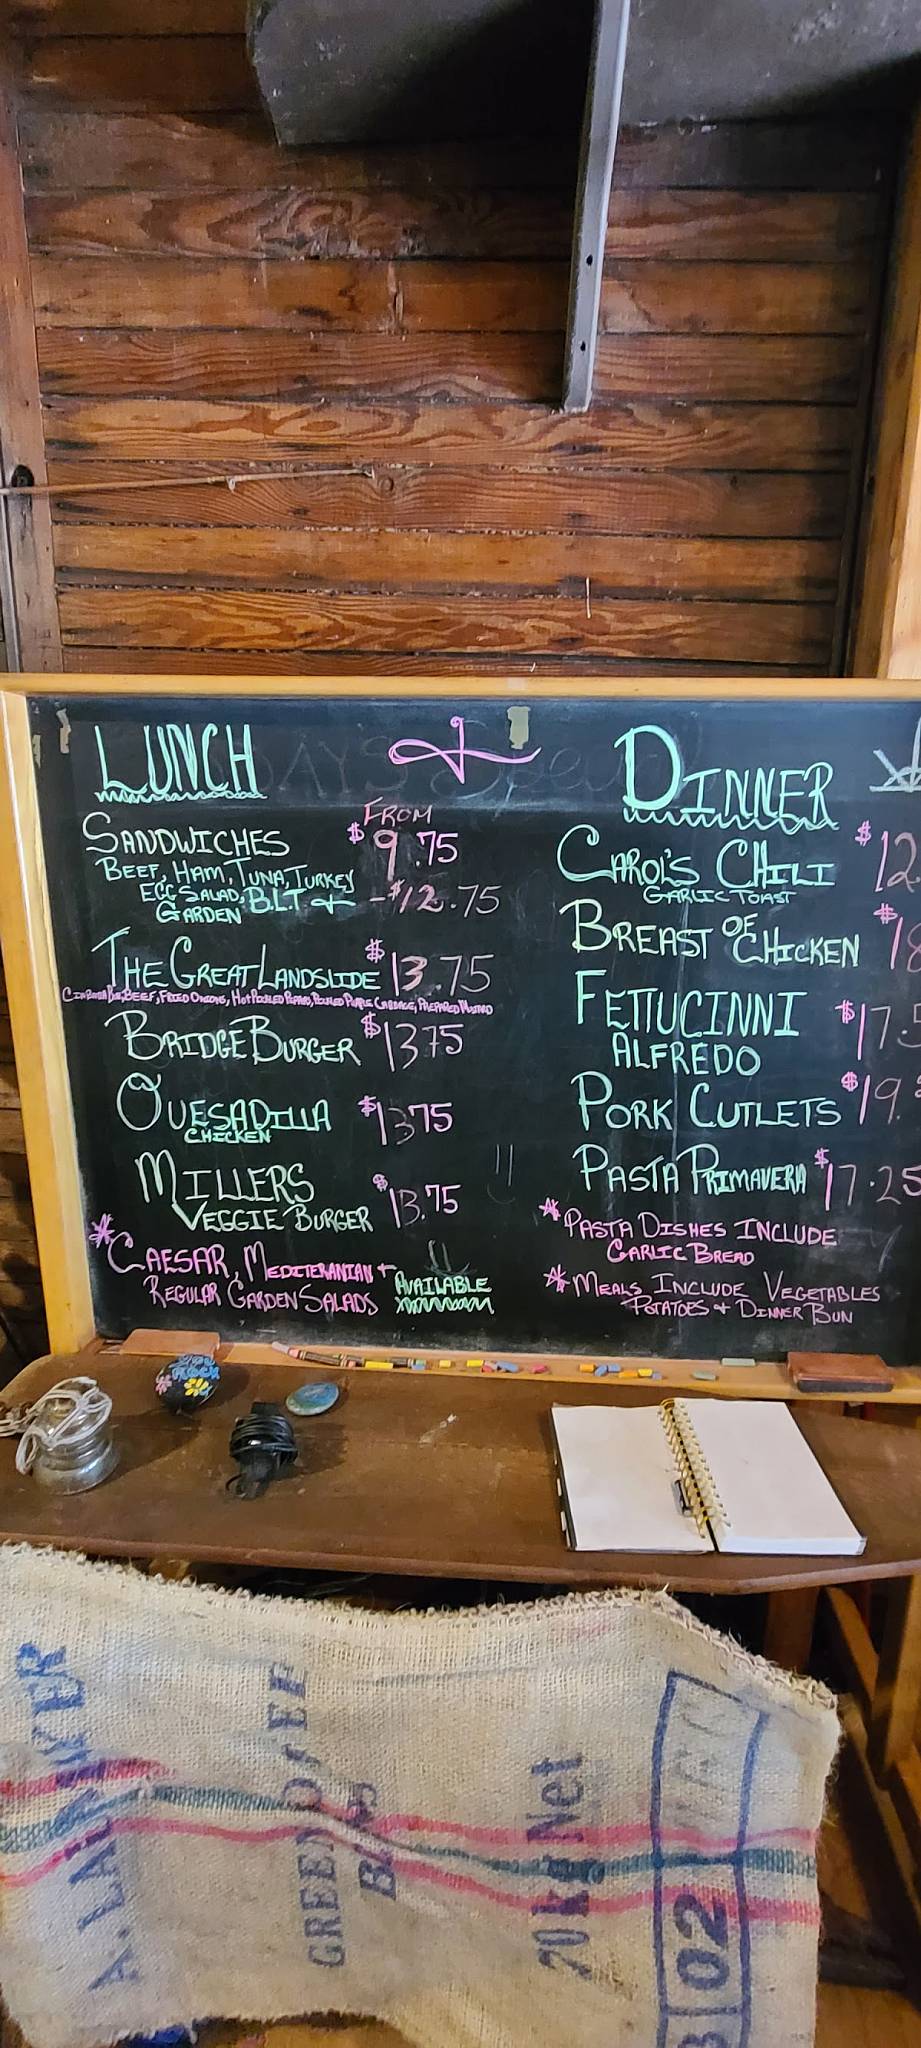 LUNCH
FROM
SANDWICHES $9.75
BEEF, HAM, TUNA, TURKEY
EGG SALAD, B.L.T + -$12.75
GARDEN
THE GREAT LANDSLIDE $13.75
BEEF, FRIED ONIONS, HOT PICKLED PEPPERS, PICKLED PURPLE CABBAGE, PREPARED MUSTARD
BRIDGE BURGER $13.75
QUESADILLA $13.75
CHICKEN
MILLERS $13.75
VEGGIE BURGER
* CAESAR, MEDITERANIAN +
REGULAR GARDEN SALADS AVAILABLE
DINNER
CAROL'S CHILI $12.
GARLIC TOAST
BREAST OF CHICKEN $18
FETTUCINNI $17.5
ALFREDO
PORK CUTLETS $19.
PASTA PRIMAVERA $17.25
* PASTA DISHES INCLUDE
GARLIC BREAD
* MEALS INCLUDE VEGETABLES
POTATOES + DINNER BUN
YOU
ROCK
GREEN
70kg Net
02